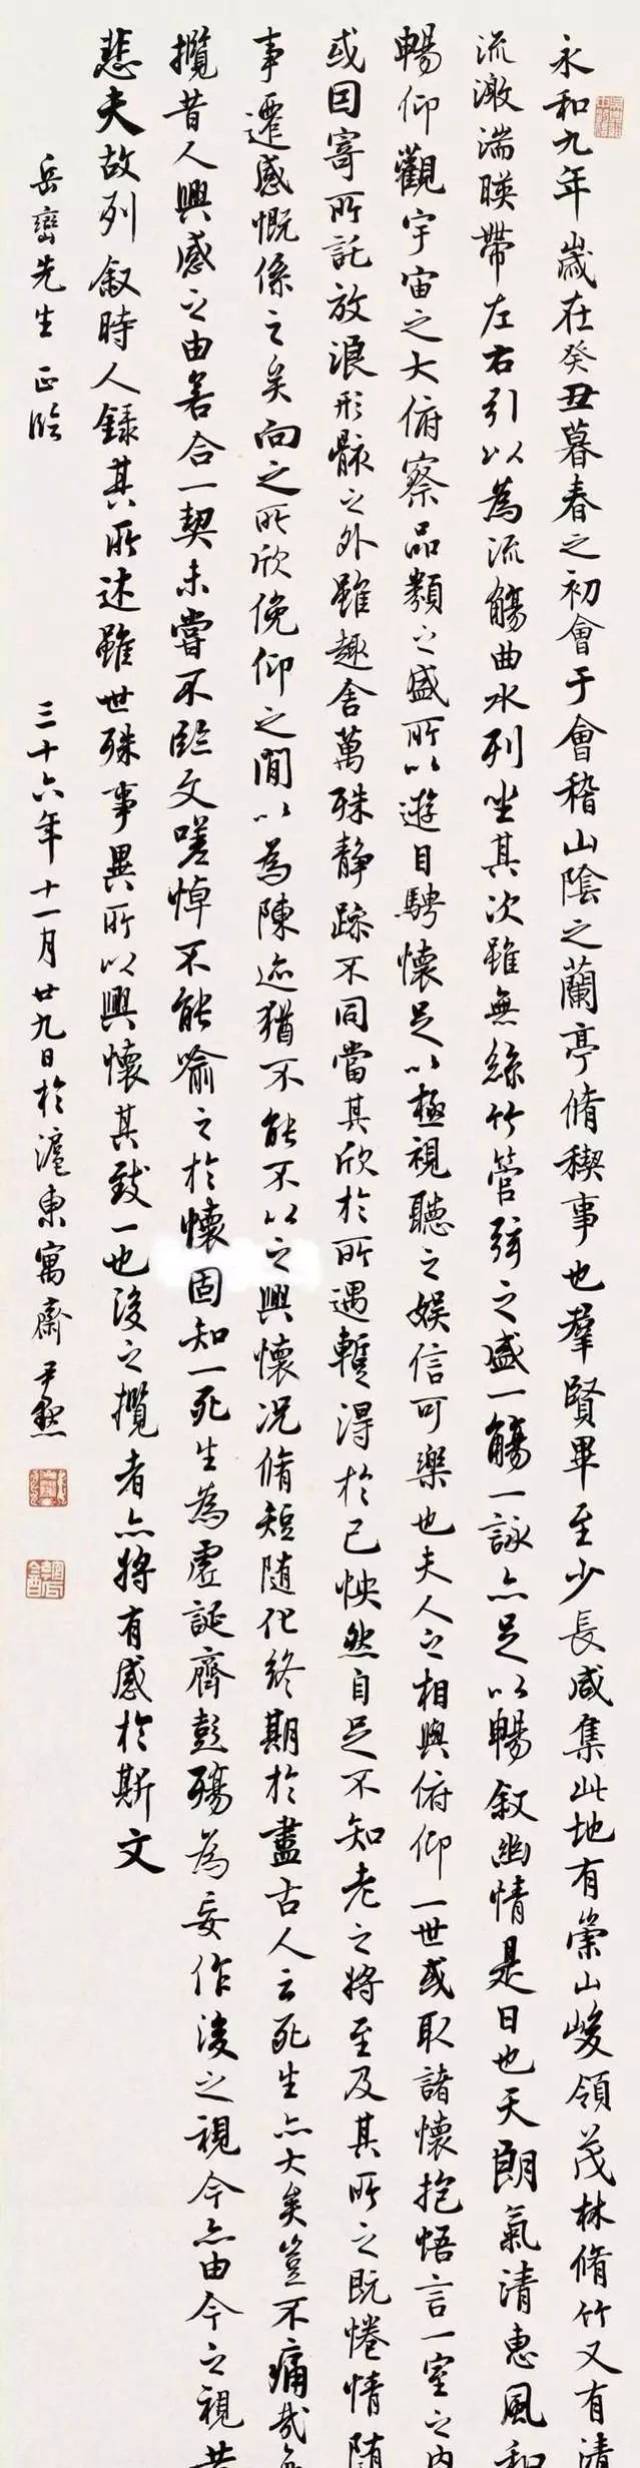 永和九年歲在癸丑暮春之初會于會稽山陰之蘭亭脩稧事也羣賢畢至少長咸集此地有崇山峻領茂林脩竹又有清
流激湍暎帶左右引以為流觴曲水列坐其次雖無絲竹管弦之盛一觴一詠亦足以暢叙幽情是日也天朗氣清惠風和
暢仰觀宇宙之大俯察品類之盛所以遊目騁懷足以極視聽之娛信可樂也夫人之相與俯仰一世或取諸懷抱悟言一室之內
或因寄所託放浪形骸之外雖趣舍萬殊静躁不同當其欣於所遇蹔得於己怏然自足不知老之將至及其所之既惓情隨
事遷感慨係之矣向之所欣俛仰之閒以為陳迹猶不能不以之興懷況脩短隨化終期於盡古人云死生亦大矣豈不痛哉
攬昔人興感之由若合一契未嘗不臨文嗟悼不能喻之於懷固知一死生為虛誕齊彭殤為妄作後之視今亦由今之視昔
悲夫故列叙時人錄其所述雖世殊事異所以興懷其致一也後之攬者亦將有感於斯文
岳巒先生正臨
三十六年十一月廿九日於滬東寓齋尹默